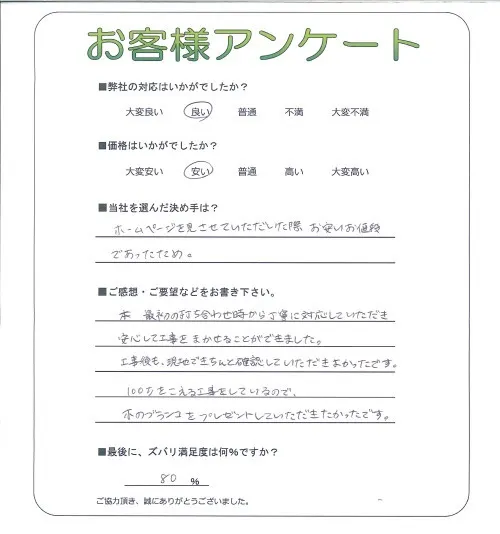 お客様アンケート
■弊社の対応はいかがでしたか？
大変良い 良い 普通 不満 大変不満
■価格はいかがでしたか？
大変安い 安い 普通 高い 大変高い
■当社を選んだ決め手は？
ホームページを見させていただいた際、お安いお値段
であったため。
■ご感想・ご要望などをお書き下さい。
最初の打ち合わせ時から丁寧に対応していただき
安心して工事をまかせることができました。
工事後も、現地できちんと確認していただきよかったです。
100万をこえる工事をしているので、
木のブランコをプレゼントしていただきたかったです。
■最後に、ズバリ満足度は何%ですか？
80 %
ご協力頂き、誠にありがとうございました。